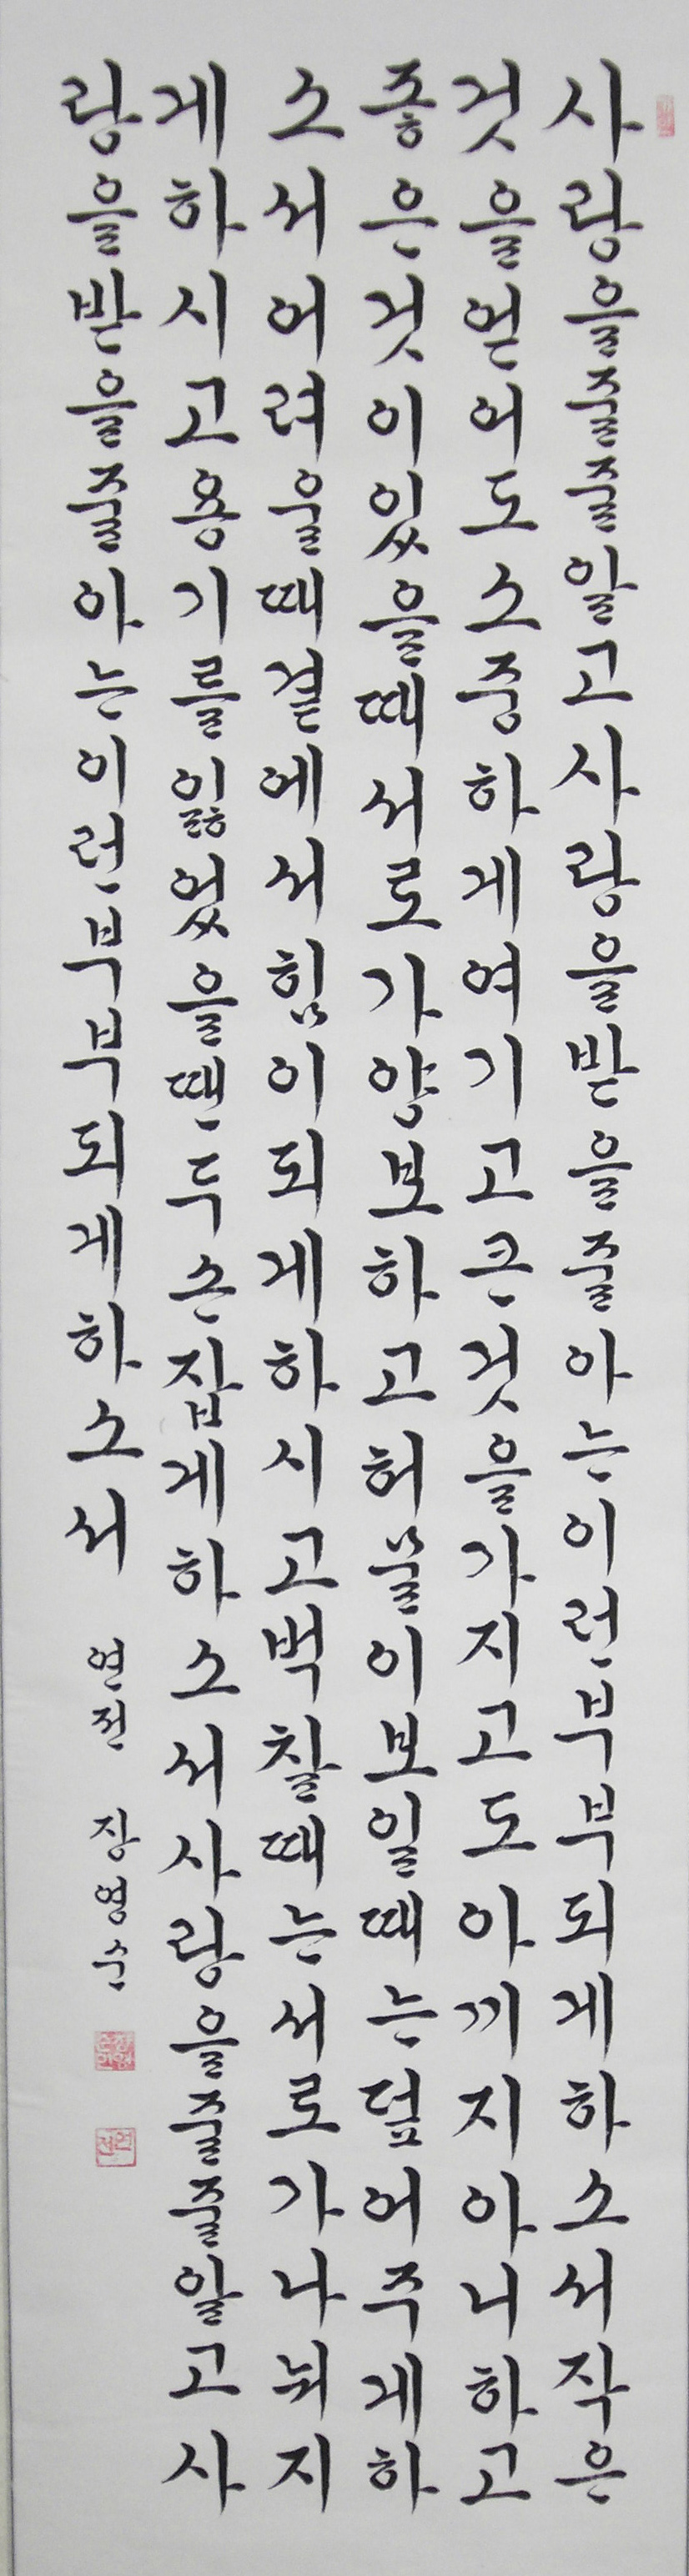 사랑을줄줄알고사랑을받을줄아는이런부부되게하소서작은
것을얻어도소중하게여기고큰것을가지고도아끼지아니하고
좋은것이있을때서로가양보하고허물이보일때는덮어주게하
소서어려울때곁에서힘이되게하시고벅찰때는서로가나눠지
게하시고용기를잃었을땐두손잡게하소서사랑을줄줄알고사
랑을받을줄아는이런부부되게하소서 연전 장영순